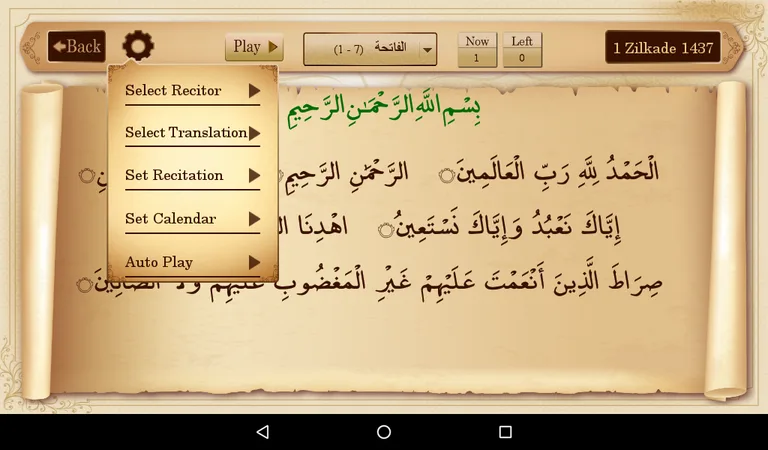 Back
Play
الفاتحة (1 - 7)
Now
1
Left
0
1 Zilkade 1437
Select Recitor
Select Translation
Set Recitation
Set Calendar
Auto Play
بِسْمِ اللَّهِ الرَّحْمَٰنِ الرَّحِيمِ
الْحَمْدُ لِلَّهِ رَبِّ الْعَالَمِينَ الرَّحْمَٰنِ الرَّحِيمِ
إِيَّاكَ نَعْبُدُ وَإِيَّاكَ نَسْتَعِينُ اهْدِنَا
صِرَاطَ الَّذِينَ أَنْعَمْتَ عَلَيْهِمْ غَيْرِ الْمَغْضُوبِ عَلَيْهِمْ وَلَا الضَّالِّينَ